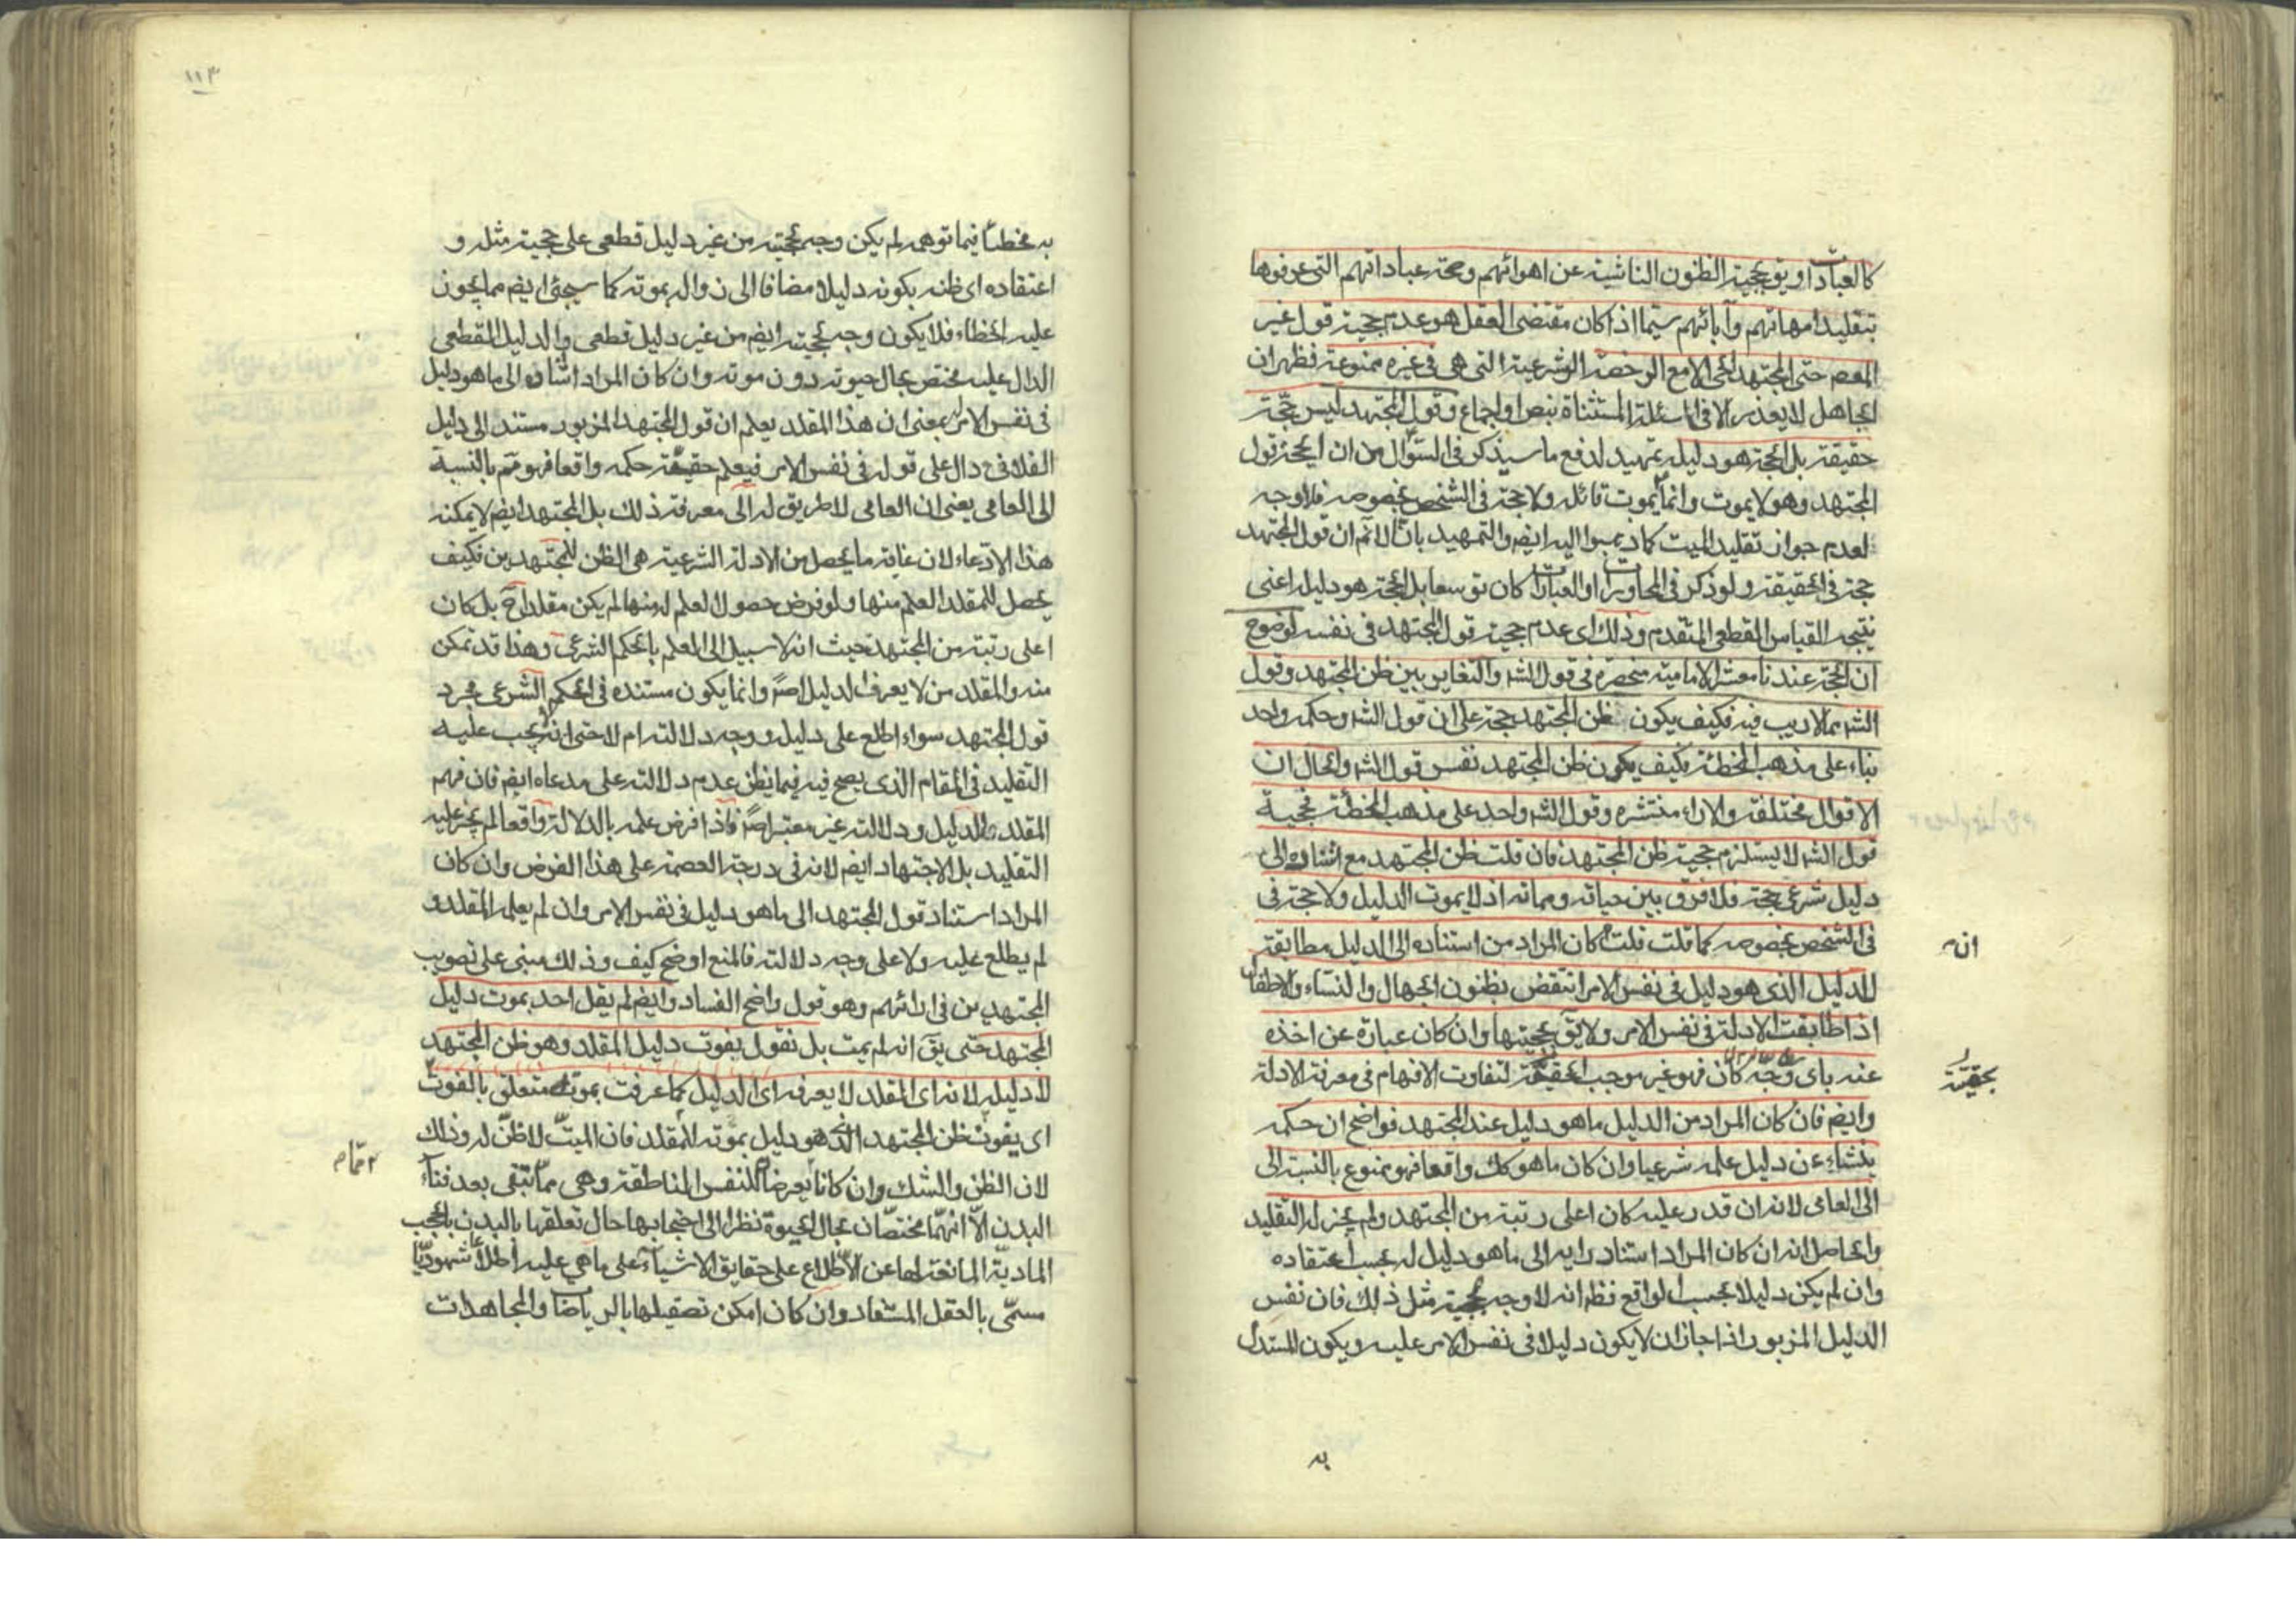 كالعبادات او يق بحجية الظنون الناشية عن اهوائهم وصحة عباداتهم التي عرفوها
بتقليد امهاتهم وآبائهم سيما اذا كان مقتضى العقل هو عدم حجية قول غير
المعصوم حتى المجتهد الحى الا مع الرخصة الشرعية التى هى فى غيره ممنوعة فظهر ان
الجاهل لا يعذر الا فى المسئلة المستثناة بنص او اجماع وقول المجتهد ليس حجّة
حقيقة بل الحجة هو دليله تمهيد لدفع ما سيذكر فى السؤال من ان الحجة قول
المجتهد وهو لا يموت وانما يموت قائله ولا حجة فى الشخص بخصوصه فلا وجه
لعدم جواز تقليد الميت كما ذهبوا اليه ايضا والتمهيد بانا لا نم ان قول المجتهد
حجة فى الحقيقة ولو ذكر فى المحاورات او العبارات كان توسعا بل الحجة هو دليله اعنى
نتيجة القياس القطعى المتقدم وذلك اى عدم حجية قول المجتهد فى نفسه لوضوح
ان الحجة عندنا معشر الامامية منحصرة فى قول الشه والتغاير بين ظن المجتهد وقول
الشه مما لا ريب فيه فكيف يكون ظن المجتهد حجة على ان قول الشه وحكمه واحد
بناء على مذهب المخطئة فكيف يكون ظن المجتهد نفس قول الشه والحال ان
الاقوال مختلفة والاراء منتشره وقول الشه واحد على مذهب المخطئة فحجية
قول الشه لا يستلزم حجية ظن المجتهد فان قلت ظن المجتهد مع استناده الى
دليل شرعى حجة فلا فرق بين حياته ومماته اذ لا يموت الدليل ولا حجة فى
فى الشخص بخصوصه كما قلت قلت كان المراد من استناده الى الدليل مطابقته
ان
للدليل الذى هو دليل فى نفس الامر انتقض بظنون الجهال والنساء والاطفال
اذا طابقت الادلة فى نفس الامر ولا يق بحجيتها وان كان عبارة عن اخذه
عنه باى وجه كان فهو غير موجب الحقيقة لتفاوت الافهام فى معرفة الادلة
بحقيته
وايضم فان كان المراد من الدليل ما هو دليل عند المجتهد فواضح ان حكمه
ينشاء عن دليل علمه شرعيا وان كان ما هو كك واقعا فهو ممنوع بالنسبة الى
الى العامى لانه ان قدر عليه كان اعلى رتبة من المجتهد ولم يجز له التقليد
والحاصل انه ان كان المراد استناد رايه الى ما هو دليل له بحسب اعتقاده
وان لم يكن دليلا بحسب الواقع فظ انه لا وجه لحجية مثل ذلك فان نفس
الدليل المزبور اذا جاز ان لا يكون دليلا فى نفس الامر عليه ويكون المستدل
به
١١٣
به مخطئا فيما توهمه لم يكن وجه لحجيته من غير دليل قطعى على حجية مثله و
اعتقاده اى ظنه بكونه دليلا مضافا الى زواله بموته كما سيجئ ايضم مما يجوز
عليه الخطاء فلا يكون وجه لحجيته ايضم من غير دليل قطعى والدليل القطعى
الدال عليه مختص بحال حيوته دون موته وان كان المراد استناده الى ما هو دليل
فى نفس الامر بمعنى ان هذا المقلد يعلم ان قول المجتهد المزبور مستند الى دليل
الفلانى دال على قوله فى نفس الامر فيعلم حقيقة حكمه واقعا فهو مم بالنسبة
الى العامى يعنى ان العامى لا طريق له الى معرفة ذلك بل المجتهد ايضم لا يمكنه
هذا الادعاء لان غاية ما يحصل من الادلة الشرعية هى الظن للمجتهدين فكيف
يحصل للمقلد العلم منها ولو فرض حصول العلم له منها لم يكن مقلدا ح بل كان
اعلى رتبة من المجتهد حيث انه لا سبيل الى العلم بالحكم الشرعى وهذا قد تمكن
منه والمقلد من لا يعرف الدليل اصلا وانما يكون مستنده فى الحكم الشرعى مجرد
قول المجتهد سواء اطلع على دليله ووجه دلالته ام لا حتى انه يجب عليه
التقليد فى المقام الذى يصح فيه فيما يظن عدم دلالته على مدعاه ايضم فان فهم
المقلد للدليل ودلالته غير معتبر اصلا فاذا فرض علمه بالدلالة واقعا لم يجز عليه
التقليد بل الاجتهاد ايضم لانه فى درجة العصمة على هذا الفرض وان كان
المراد استناد قول المجتهد الى ما هو دليل فى نفس الامر وان لم يعلمه المقلد و
لم يطلع عليه ولا على وجه دلالته فالمنع اوضح كيف وذلك مبنى على تصويب
المجتهدين فى ارائهم وهو قول واضح الفساد وايضم لم يقل احد بموت دليل
المجتهد حتى يق انه لم يمت بل نقول يفوت دليل المقلد وهو ظن المجتهد
لا دليله لانه اى المقلد لا يعرفه اى الدليل كما عرفت بموته متعلق بالفوت
اى يفوت ظن المجتهد الذى هو دليل بموته للمقلد فان الميت لا ظن له وذلك
لان الظن والشك وان كانا يعرضا للنفس الناطقة وهى مما تبقى بعد فناء
البدن الا انهما مختصان بحال الحيوة نظرا الى احتجابها حال تعلقها بالبدن بالحجب
المادية المانعة لها عن الاطلاع على حقايق الاشياء على ما هى عليه اطلاعا شهوديا
مسمّى بالعقل المستفاد وان كان امكن تصقيلها بالرياضات والمجاهدات